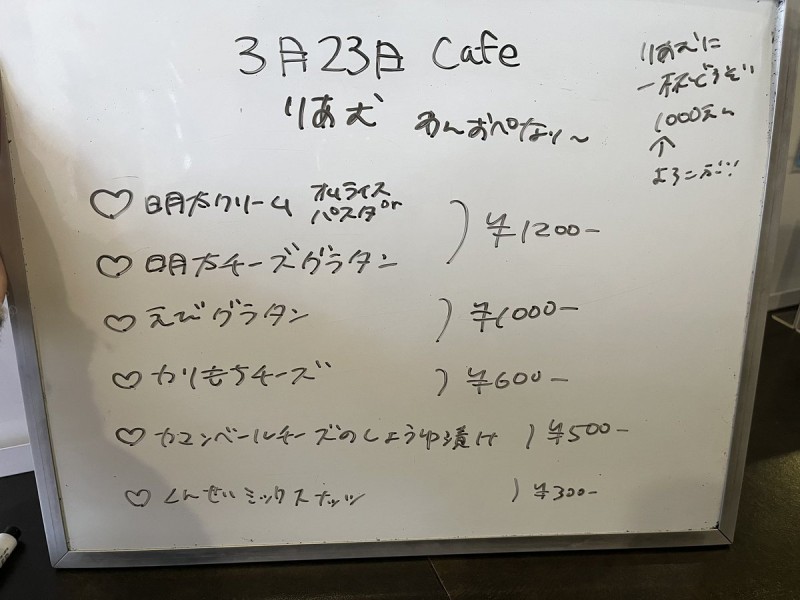 3月23日 Cafe
りあむ わんおぺなり〜
りあむに
一杯どうぞ
1000えん
↑
よろこぶ!!
♡ 明太クリーム オムライス or パスタ
♡ 明太チーズグラタン
) ¥1200-
♡ えびグラタン ) ¥1000-
♡ かりもちチーズ ) ¥600-
♡ カマンベールチーズのしょうゆ漬け ) ¥500-
♡ くんせいミックスナッツ ) ¥300-